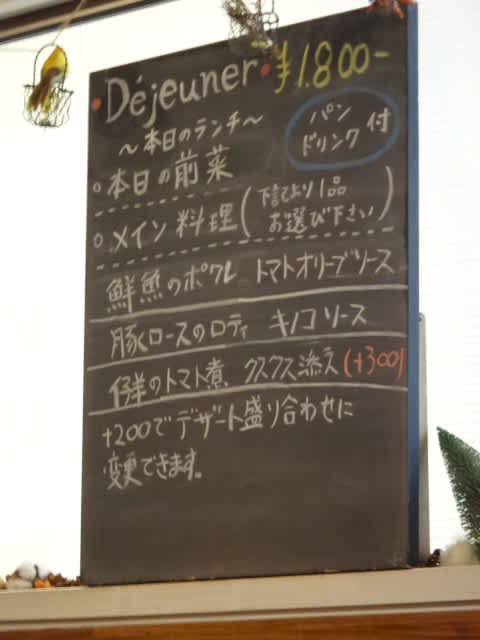 Déjeuner ¥1.800-
～本日のランチ～
パン
ドリンク 付
○本日の前菜
○メイン料理(下記より1品
お選び下さい)
鮮魚のポワレ トマトオリーブソース
豚ロースのロティ キノコソース
仔羊のトマト煮 クスクス添え(+300)
+200でデザート盛り合わせに
変更できます。